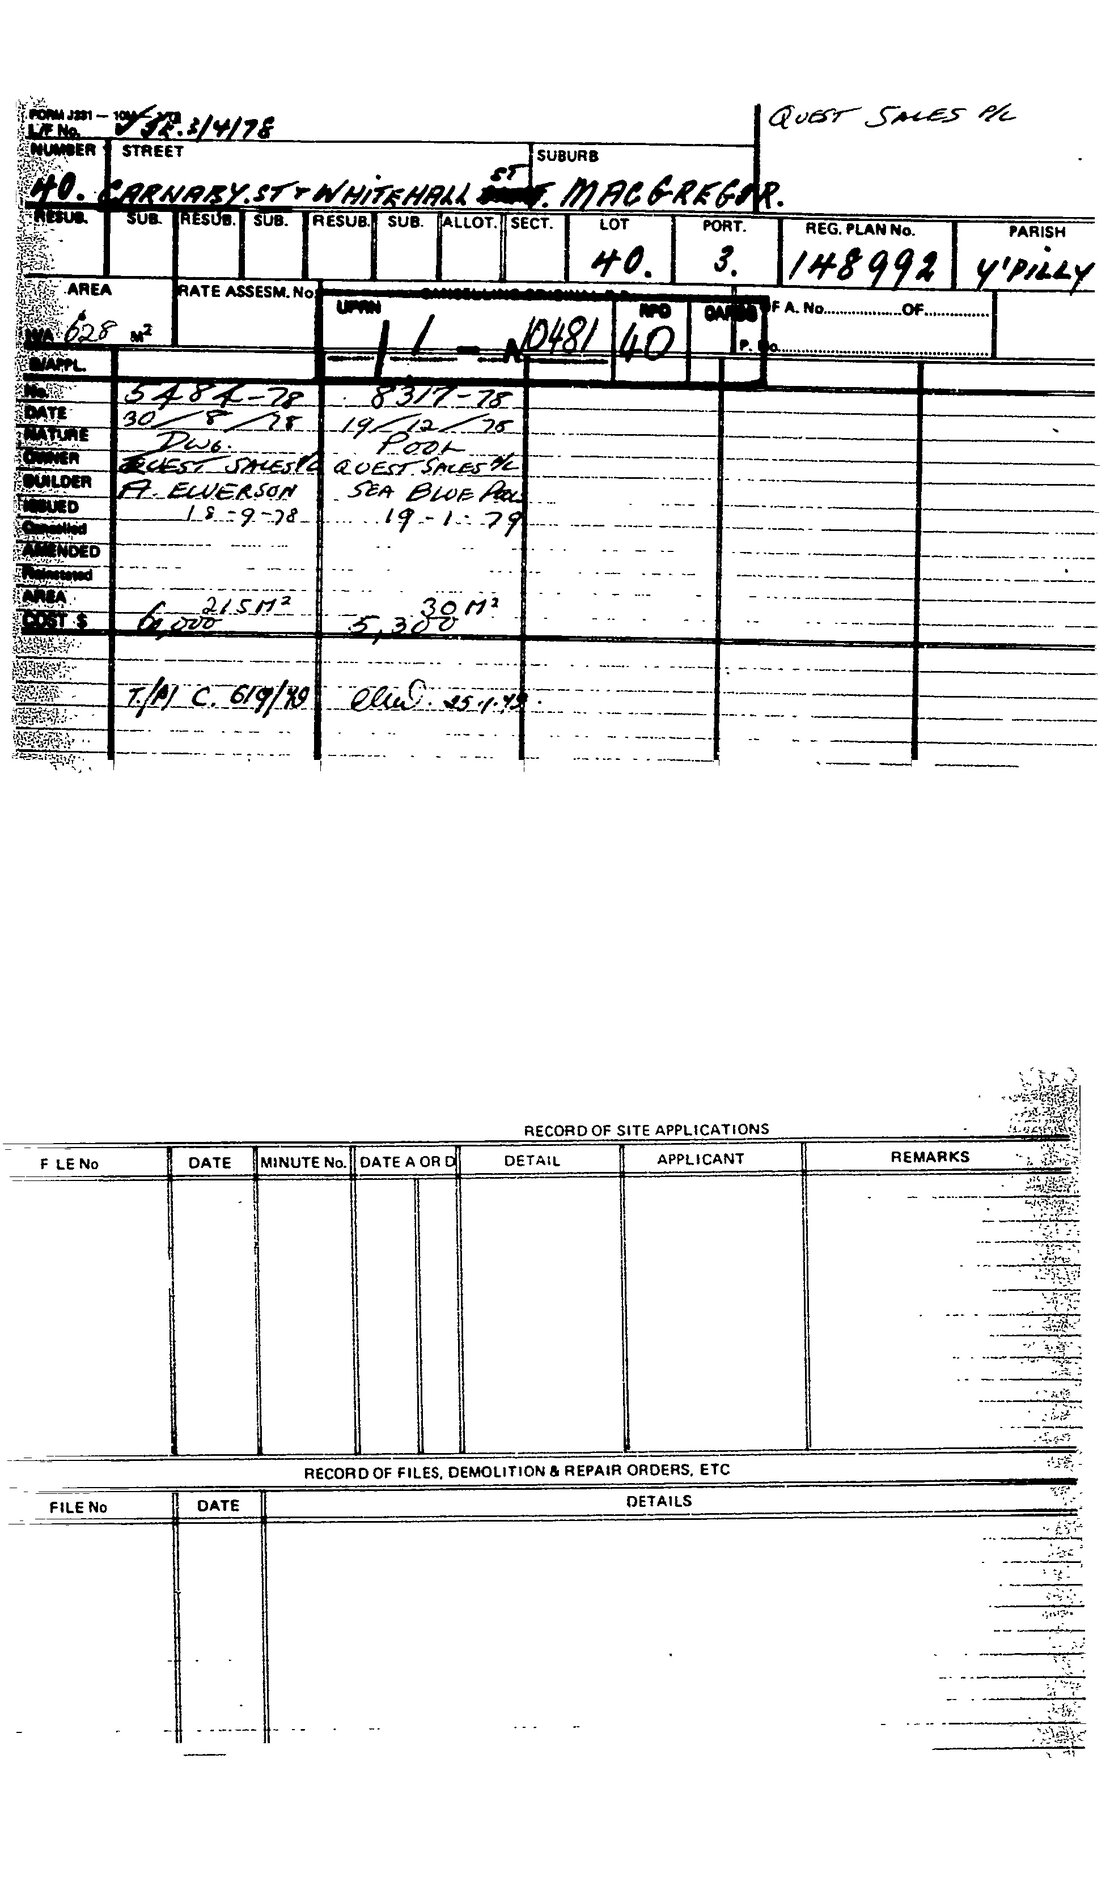 FORM J231 — 10M
L/F No. 3/4/78
QUEST SALES P/L
NUMBER STREET SUBURB
40. CARNABY.ST & WHITEHALL ST MACGREGOR.
RESUB. SUB. RESUB. SUB. RESUB. SUB. ALLOT. SECT. LOT PORT. REG. PLAN No. PARISH
40. 3. 148992 Y'PILLY
AREA RATE ASSESM. No. UPRN RPD CARDS F A. No. OF
628 M² 10481 40 P. No.
B/APPL.
No. 5484-78 8317-78
DATE 30/8/78 19/12/78
NATURE DWG. POOL
OWNER QUEST SALES P/L QUEST SALES P/L
BUILDER A. ELVERSON SEA BLUE POOLS
ISSUED 18-9-78 19-1-79
Cancelled
AMENDED
Reinstated
AREA 215 M² 30 M²
COST $ 5,300
C. 6/9/79 25.1.79.
RECORD OF SITE APPLICATIONS
F LE No DATE MINUTE No. DATE A OR D DETAIL APPLICANT REMARKS
RECORD OF FILES, DEMOLITION & REPAIR ORDERS, ETC
FILE No DATE DETAILS